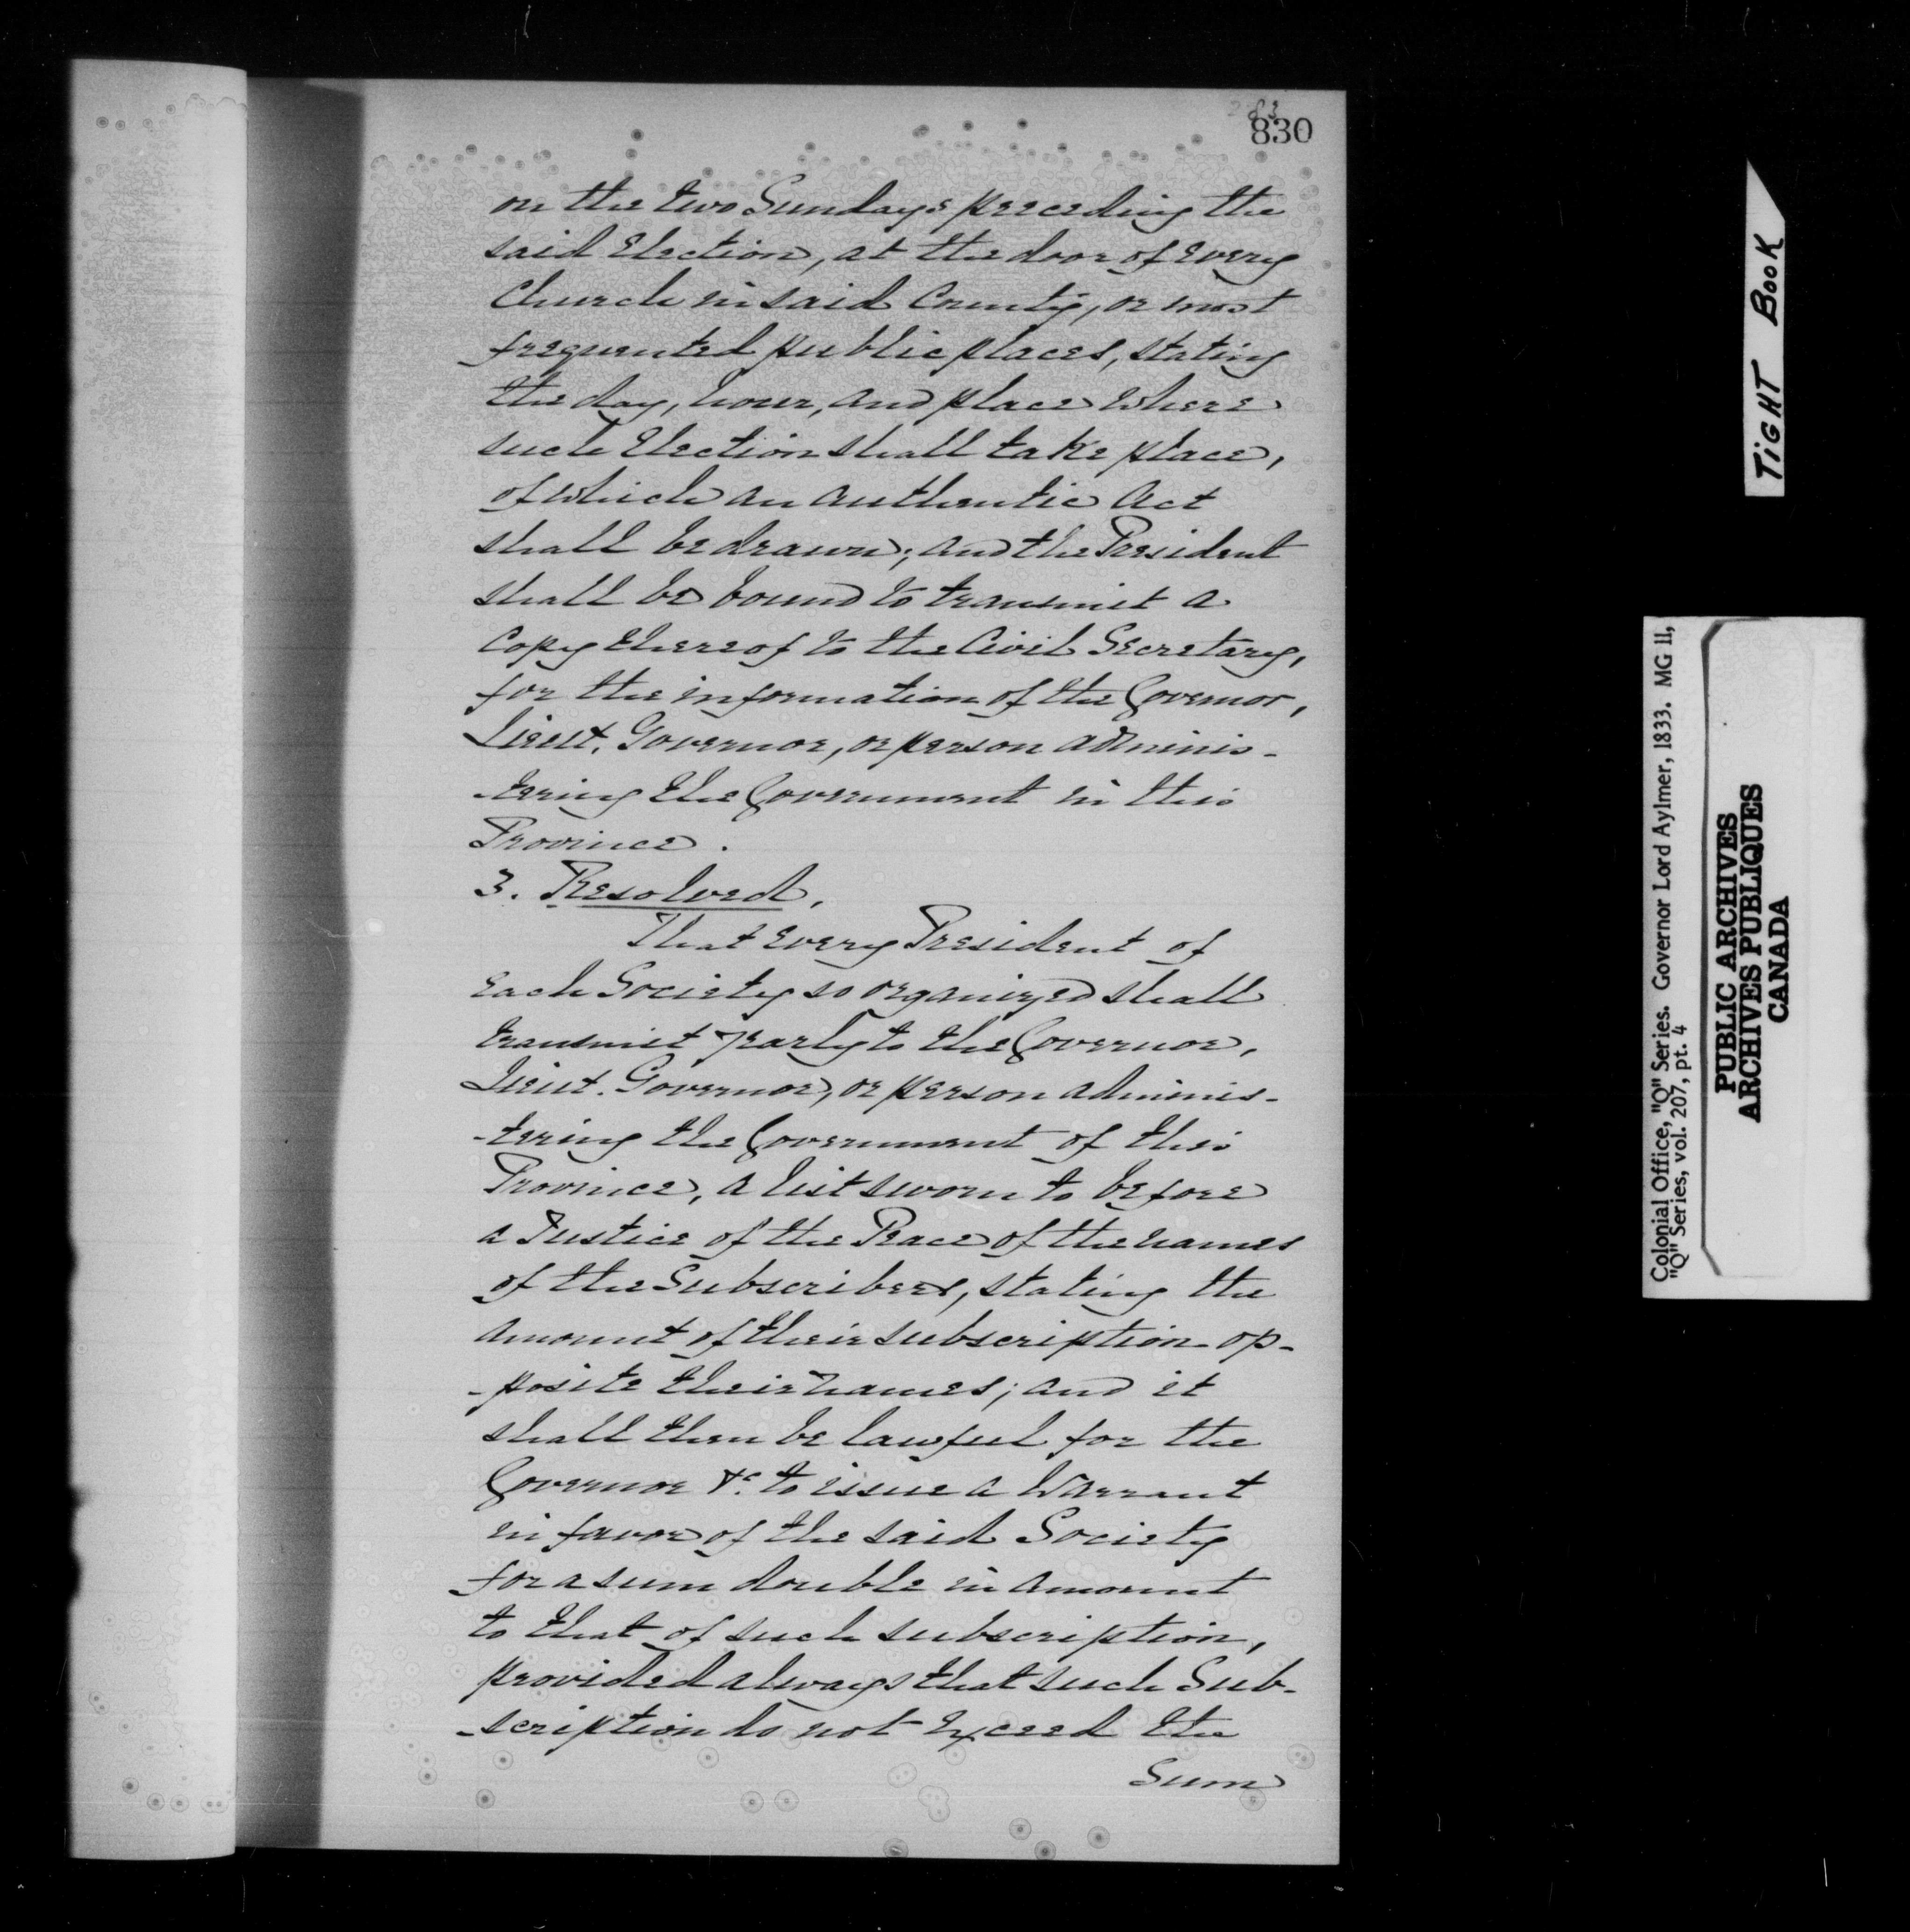 830
on the two Sundays preceding the
said Election, at the door of every
Church in said County, or most
frequented public places, stating
the day, hour, and place where
such Election shall take place,
of which an authentic Act
shall be drawn; and the President
shall be bound to transmit a
Copy thereof to the Civil Secretary,
for the information of the Governor,
Lieut. Governor, or person adminis-
-tering the Government in this
Province.
3. Resolved,
That every President of
each Society so organized shall
transmit yearly to the Governor,
Lieut. Governor, or person adminis-
-tering the Government of this
Province, a list sworn to before
a Justice of the Peace of the names
of the Subscribers, stating the
amount of their subscription op-
-posite their names; and it
shall then be lawful for the
Governor &c. to issue a Warrant
in favor of the said Society
for a sum double in amount
to that of such subscription,
provided always that such Sub-
-scription do not exceed the
Sum
TIGHT BOOK
Colonial Office, "Q" Series. Governor Lord Aylmer, 1833. MG 11,
"Q" Series, vol. 207, pt. 4
PUBLIC ARCHIVES
ARCHIVES PUBLIQUES
CANADA